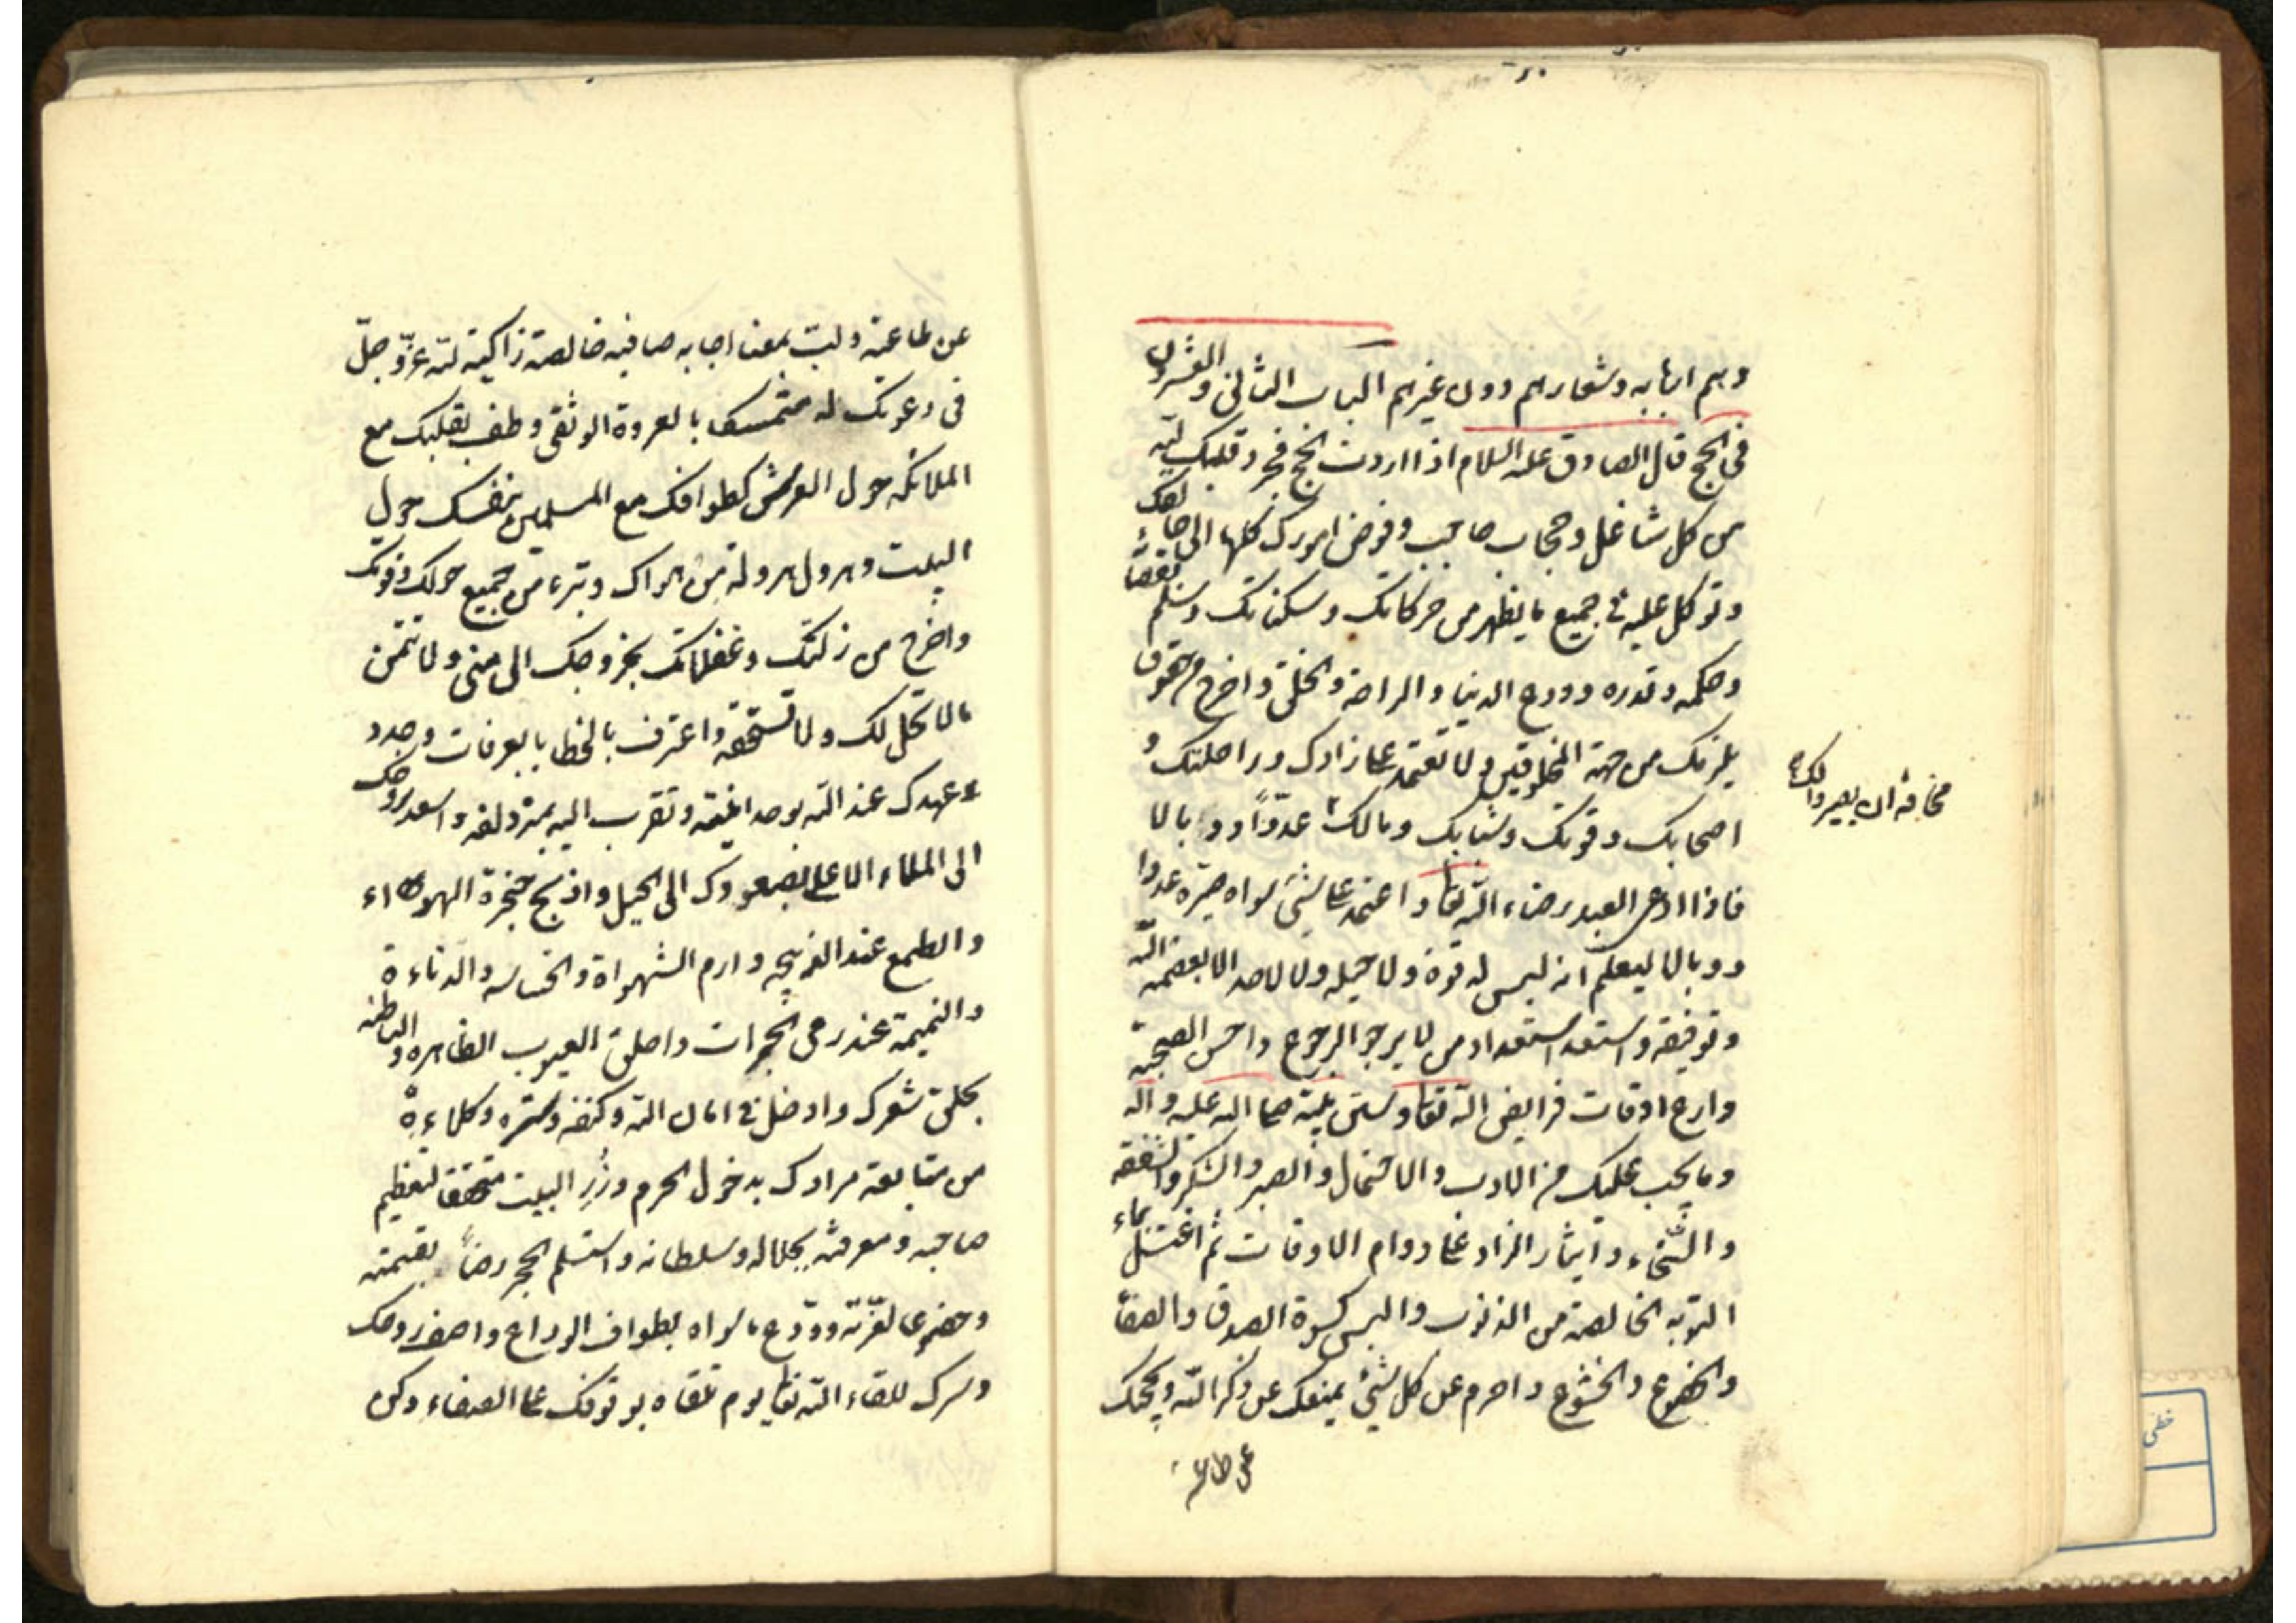 وهم اربابه وشعارهم دون غيرهم الباب الثاني والعشرون
في الحج قال الصادق عليه السلام اذا اردت الحج فجرد قلبك لله
من كل شاغل وحجاب حاجب وفوض امورك كلها الى خالقك
وتوكل عليه في جميع ما يظهر من حركاتك وسكناتك وسلم لقضائه
وحكمه وقدره وودع الدنيا والراحة والخلق واخرج من حقوق
يلزمك من جهة المخلوقين ولا تعتمد على زادك وراحلتك و
اصحابك وقوتك وشبابك ومالك عدوا ووبالا
مخافة ان يصير ذلك
فاذا ادعى العبد رضاء الله تعا واعتمد على شئ سواه صيره عدوا
ووبالا ليعلم انه ليس له قوة ولا حيله ولا لاحد الا بعصمه الله
وتوفيقه واستعد استعداد من لا يرجو الرجوع واحسن الصحبة
وارع اوقات فرايض الله تعا وسنن نبيه صلى الله عليه واله
وما يجب عليك من الادب والاحتمال والصبر والشكر والشفقه
والسخاء وايثار الزاد على دوام الاوقات ثم اغتسل بماء
التوبه الخالصة من الذنوب والبس كسوة الصدق والصفا
والخضوع والخشوع واحرم عن كل شئ يمنعك عن ذكر الله ويحجبك
عن طاعته
عن طاعته ولب بمعنا اجابه صافيه خالصة زاكية لله عز وجل
في دعوتك له متمسكا بالعروة الوثقى وطف بقلبك مع
الملائكه حول العرش كطوافك مع المسلمين بنفسك حول
البيت وهرول هروله من هواك وتبرء من جميع حولك وقوتك
واخرج من زلتك وغفلاتك بخروجك الى منى ولا تتمن
ما لا تحل لك ولا تستحقه واعترف بالخطايا بالعرفات وجدد
عهدك عند الله بوحدانيته وتقرب اليه بمزدلفه واصعد بروحك
الى الملاء الاعلى بصعودك الى الجبل واذبح حنجرة الهواء
والطمع عند الذبيحه وارم الشهواة والخساسه والدناءة
والذميمة عند رمى الجمرات واحلق العيوب الظاهره والباطنه
بحلق شعرك وادخل في امان الله وكنفه وستره وكلاءة
من متابعة مرادك بدخول الحرم وزر البيت متحققا لتعظيم
صاحبه ومعرفته بجلاله وسلطانه واستلم الحجر رضاً بقسمته
وخضوعا لعزته وودع ما سواه بطواف الوداع واصف روحك
وسرك للقاء الله تعا يوم تلقاه بوقوفك على الصفاء وكن